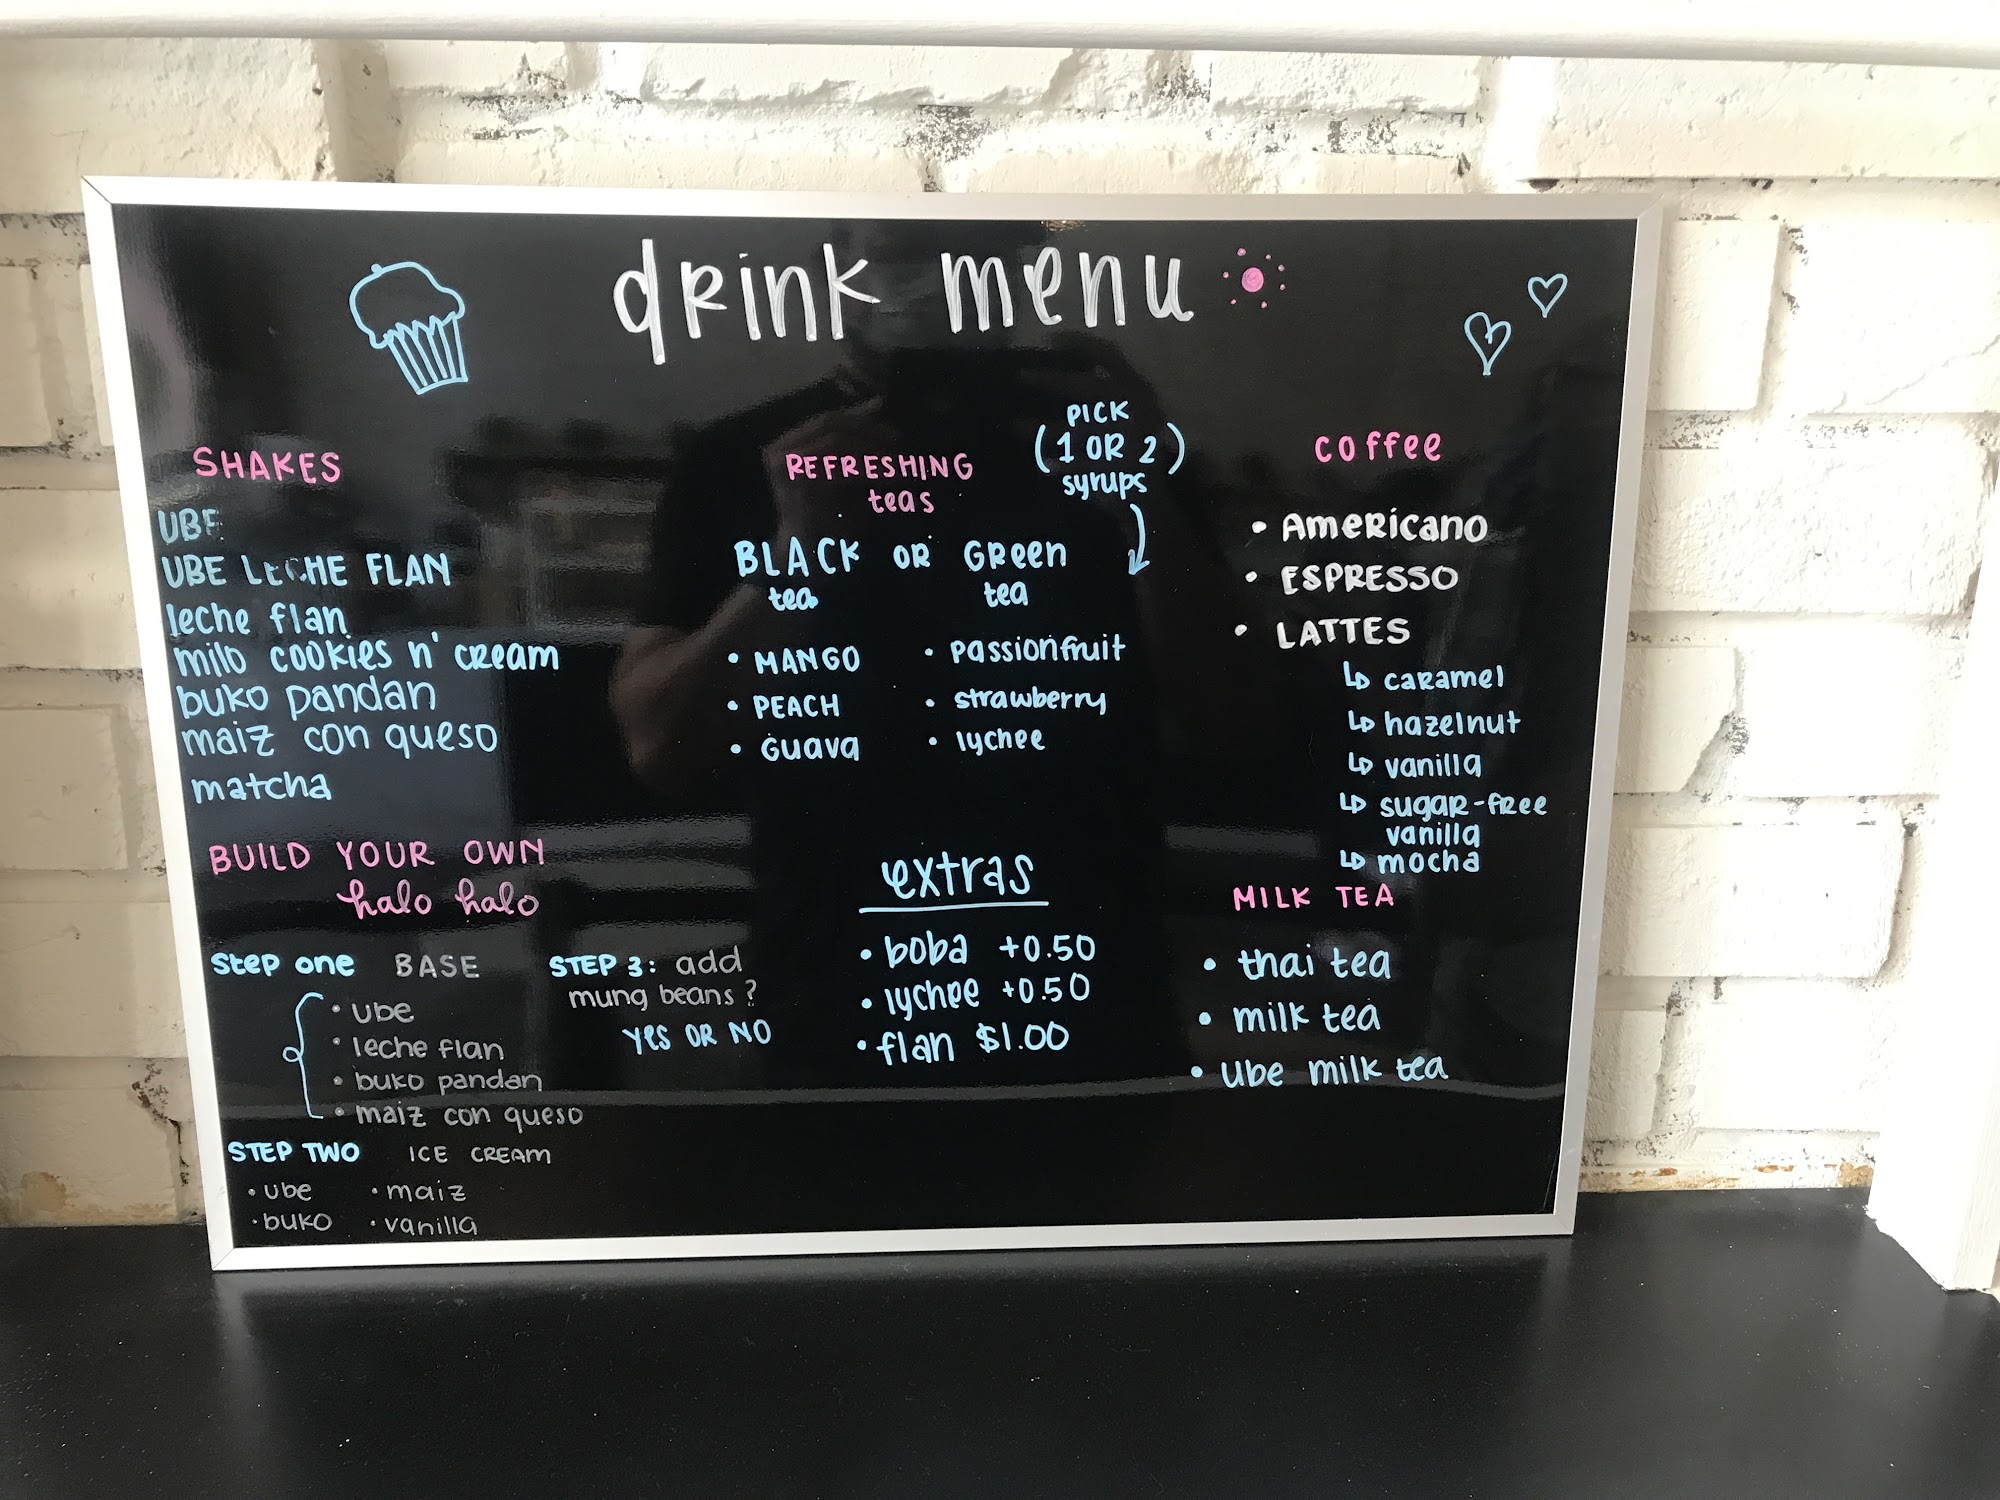 drink menu
SHAKES
UBE
UBE LECHE FLAN
leche flan
milo cookies n' cream
buko pandan
maiz con queso
matcha
BUILD YOUR OWN
halo halo
Step one BASE
• ube
• leche flan
• buko pandan
• maiz con queso
STEP TWO ICE CREAM
• ube • maiz
• buko • vanilla
STEP 3: add
mung beans?
YES OR NO
REFRESHING
teas
PICK
(1 OR 2)
syrups
BLACK OR GREEN
tea tea
• MANGO • passionfruit
• PEACH • strawberry
• Guava • lychee
extras
• boba +0.50
• lychee +0.50
• flan $1.00
coffee
• Americano
• ESPRESSO
• LATTES
↳ caramel
↳ hazelnut
↳ vanilla
↳ sugar-free
vanilla
↳ mocha
MILK TEA
• thai tea
• milk tea
• ube milk tea